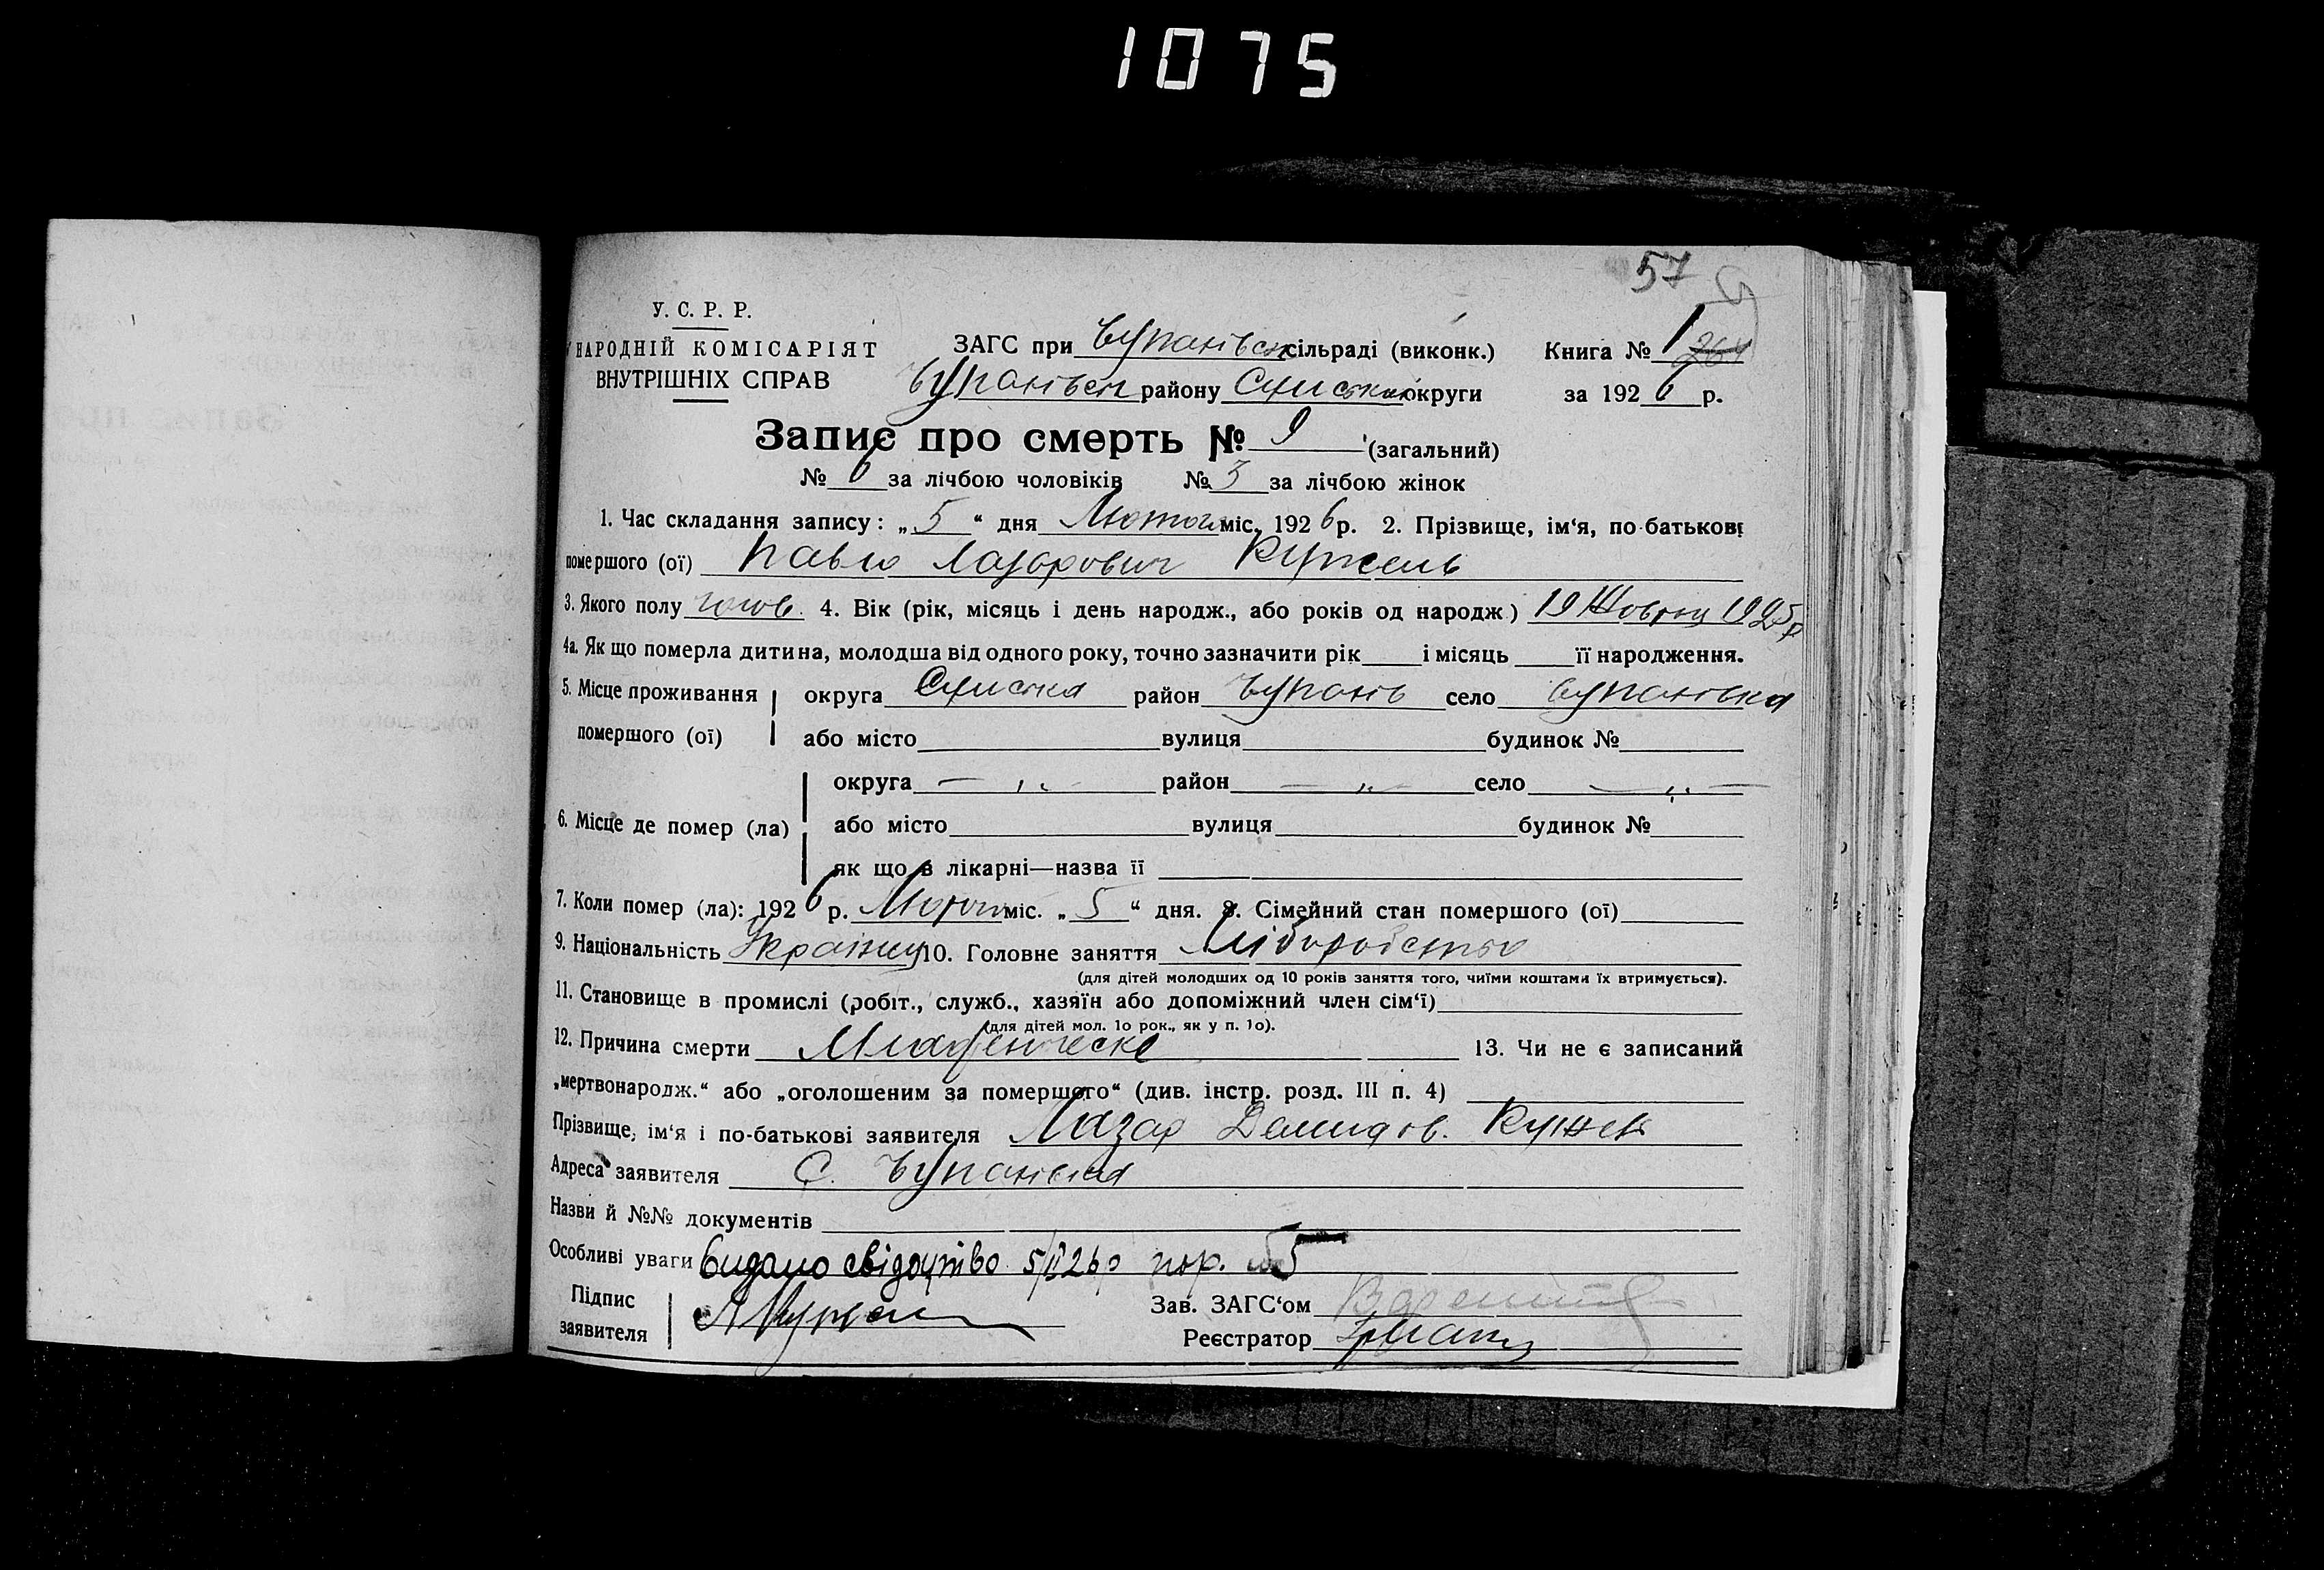 1075
57
У. С. Р. Р.
НАРОДНІЙ КОМІСАРІЯТ
ВНУТРІШНІХ СПРАВ
ЗАГС при Чупахівськ сільраді (виконк.) Книга № 1
Чупахівськ району Сумської округи за 1926 р.
Запис про смерть № 9 (загальний)
№ 6 за лічбою чоловіків № 3 за лічбою жінок
1. Час складання запису: „5“ дня Лютого міс. 1926 р. 2. Прізвище, ім‘я, по-батькові
помершого (ої) Павло Лазарович Кужель
3. Якого полу чолов. 4. Вік (рік, місяць і день народж., або років од народж) 19 Жовтня 1925 р
4а. Як що померла дитина, молодша від одного року, точно зазначити рік і місяць її народження.
5. Місце проживання помершого (ої) округа Сумська район Чупахів село Чупахівка
або місто вулиця будинок №
6. Місце де помер (ла) округа — „ — район — „ село — „ —
або місто вулиця будинок №
як що в лікарні—назва її
7. Коли помер (ла): 1926 р. Лютого міс. „5“ дня. 8. Сімейний стан помершого (ої)
9. Національність Українец 10. Головне заняття Хліборобство
(для дітей молодших од 10 років заняття того, чиїми коштами їх втримується).
11. Становище в промислі (робіт., служб., хазяїн або допоміжний член сім‘ї)
(для дітей мол. 1о рок., як у п. 1о).
12. Причина смерти Младенческе 13. Чи не є записаний
„мертвонародж.“ або „оголошеним за помершого“ (див. інстр. розд. III п. 4)
Прізвище, ім‘я і по-батькові заявителя Лазар Демидов. Кужель
Адреса заявителя С. Чупахівка
Назви й №№ документів
Особливі уваги Видано свідоцтво 5/II 26 р пор. №5
Підпис заявителя Л Кужель Зав. ЗАГС‘ом
Реєстратор